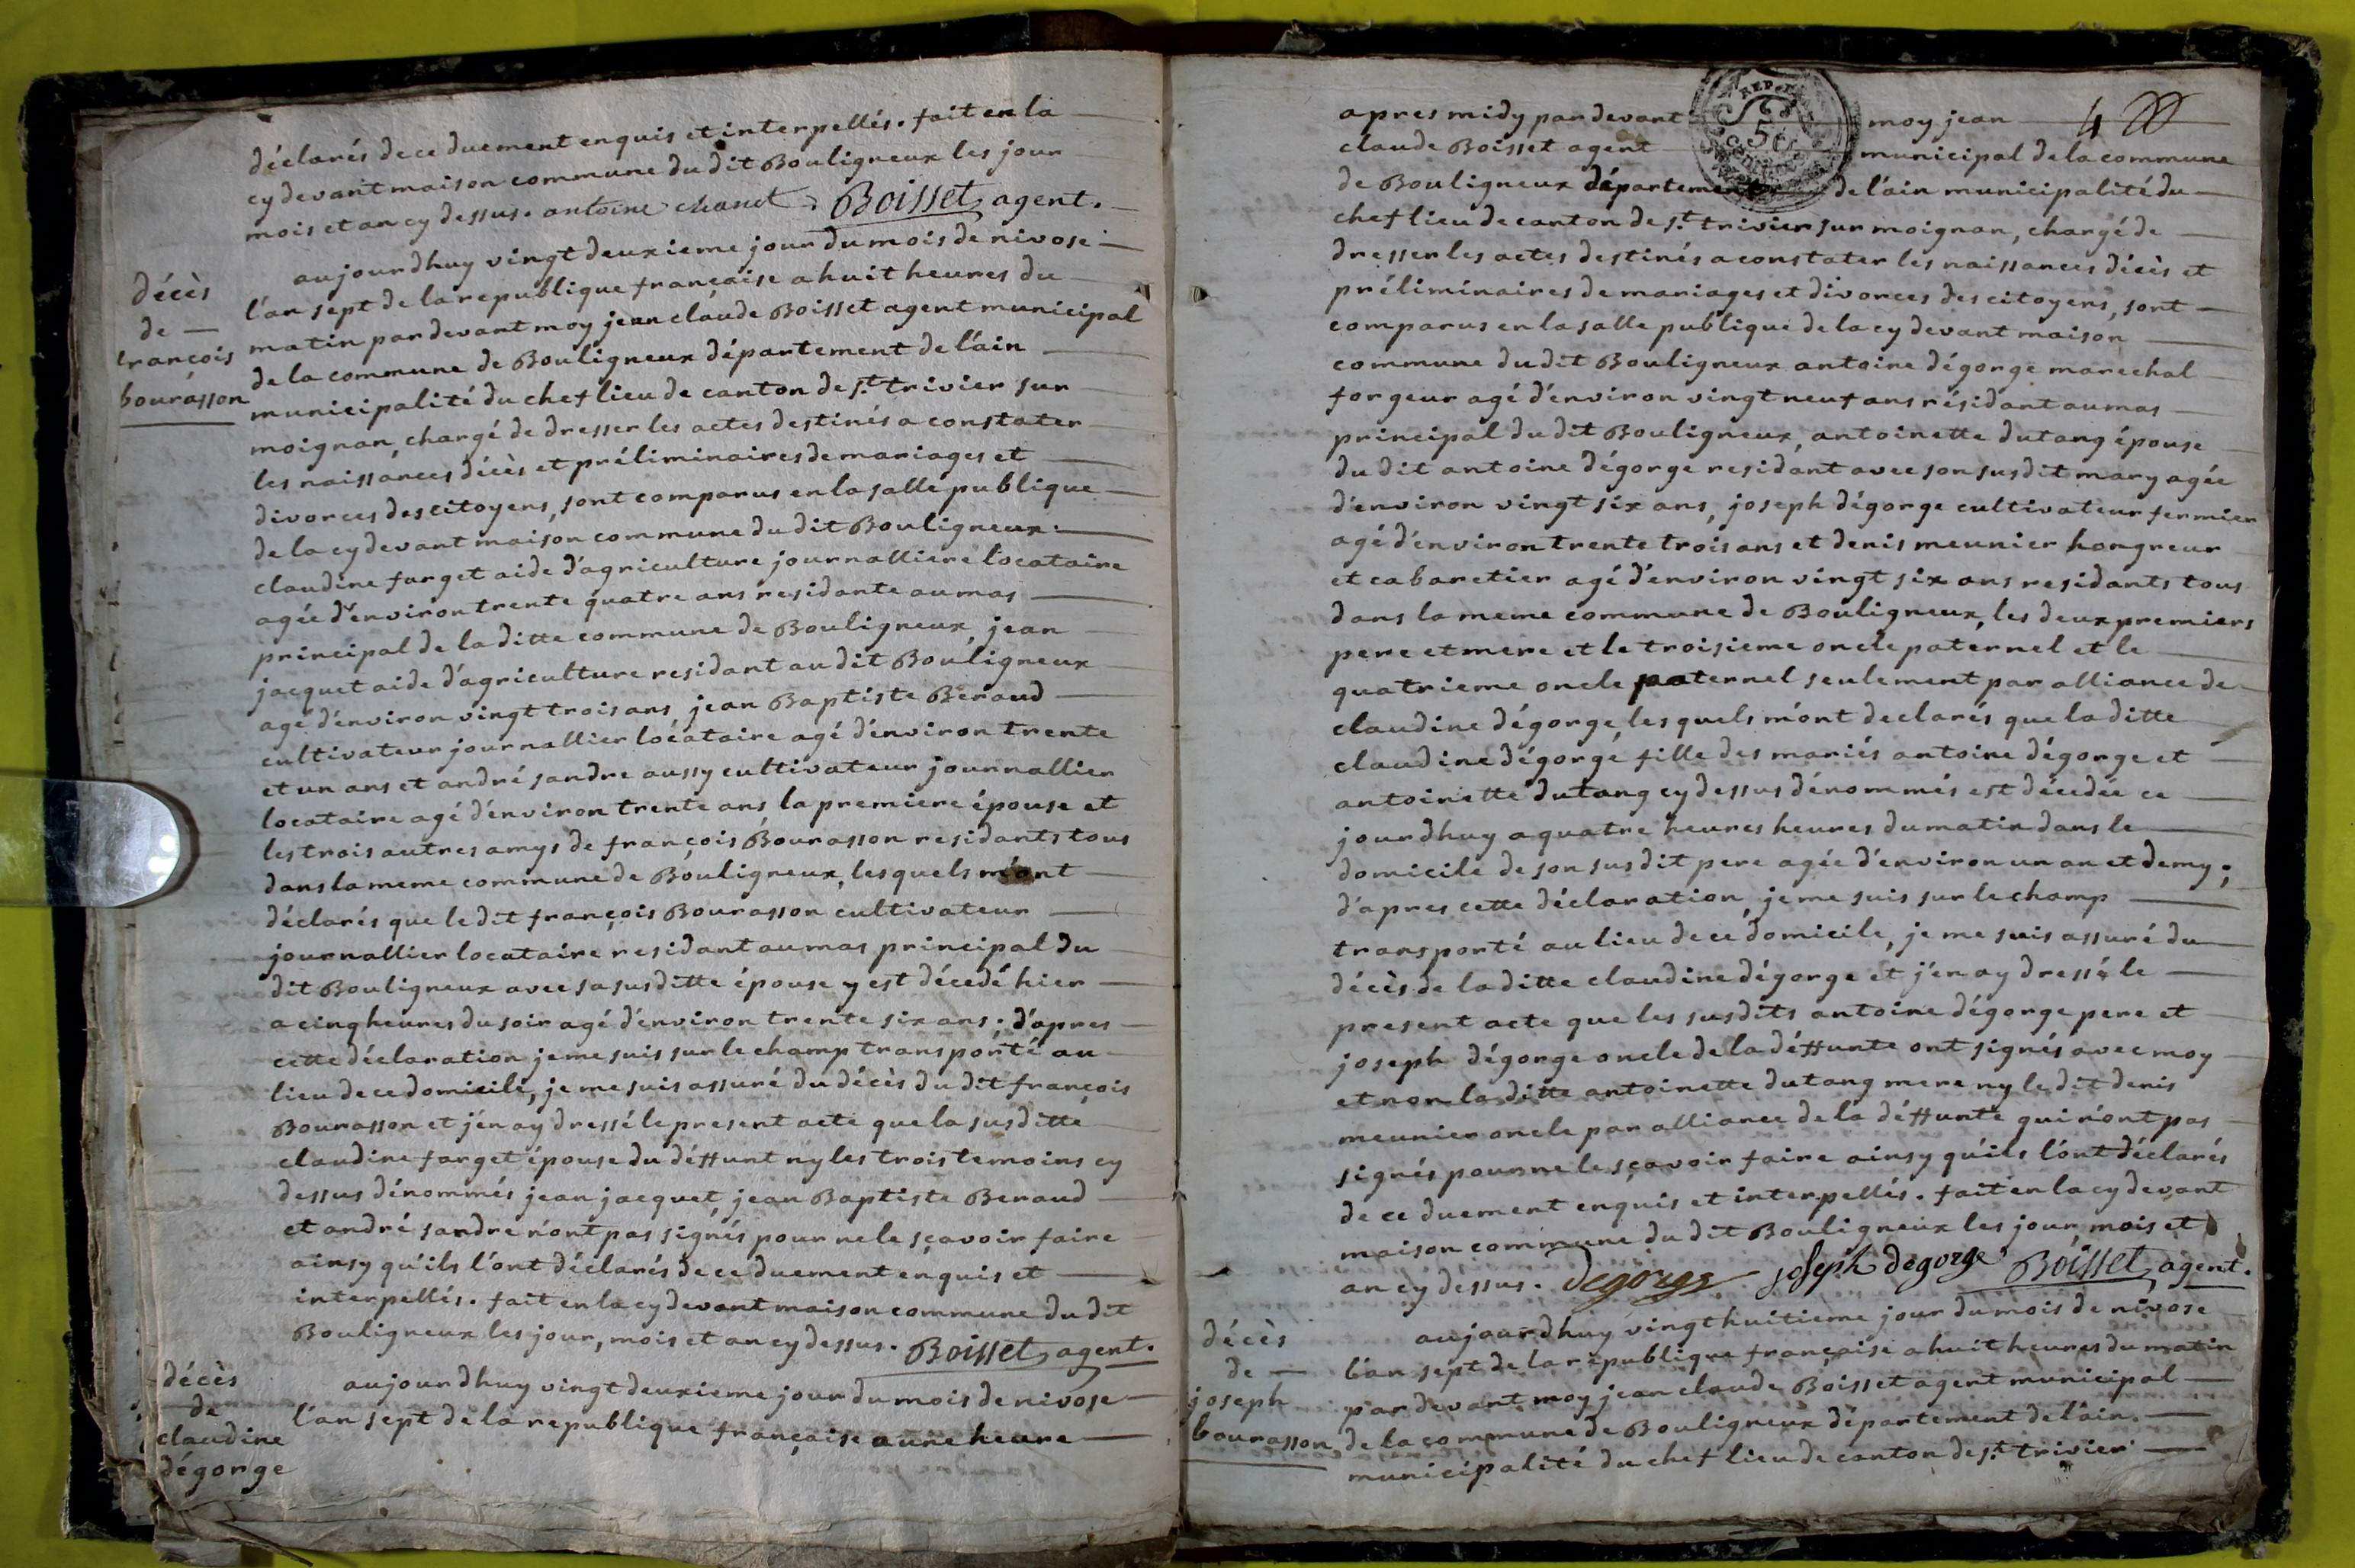 déclarés de ce duement enquis et interpellés. fait en la
cy devant maison commune du dit Bouligneux les jour
mois et an cy dessus. antoine chanet. Boisset agent.
décès
de
françois
bourasson
aujourdhuy vingt deuxieme jour du mois de nivose
l'an sept de la republique française a huit heures du
matin par devant moy jean claude Boisset agent municipal
de la commune de Bouligneux département de l'ain
municipalité du chef lieu de canton de st. trivier sur
moignan, chargé de dresser les actes destinés a constater
les naissances décès et préliminaires de mariages et
divorces des citoyens, sont comparus en la salle publique
de la cy devant maison commune du dit Bouligneux
claudine farget aide d'agriculture journalliere locataire
agée d'environ trente quatre ans residante au mas
principal de la ditte commune de Bouligneux, jean
jacquet aide d'agriculture residant au dit Bouligneux
agé d'environ vingt trois ans, jean Baptiste Beraud
cultivateur journallier locataire agé d'environ trente
et un ans et andré sandre aussy cultivateur journallier
locataire agé d'environ trente ans la premiere épouse et
les trois autres amys de françois Bourasson residants tous
dans la meme commune de Bouligneux, les quels m'ont
déclarés que le dit françois Bourasson cultivateur
journallier locataire residant au mas principal du
dit Bouligneux avec sa susditte épouse y est décedé hier
a cinq heures du soir agé d'environ trente six ans; d'apres
cette déclaration je me suis sur le champ transporté au
lieu de ce domicile, je me suis assuré du décès du dit françois
Bourasson et j'en ay dressé le present acte que la susditte
claudine farget épouse du déffunt ny les trois temoins cy
dessus dénommés jean jacquet, jean Baptiste Beraud
et andré sandre n'ont pas signés pour ne le sçavoir faire
ainsy qu'ils l'ont déclarés de ce duement enquis et
interpellés. fait en la cy devant maison commune du dit
Bouligneux les jour, mois et an cy dessus. Boisset agent.
décès
de
claudine
dégorge
aujourdhuy vingt deuxieme jour du mois de nivose
l'an sept de la republique française a une heure
4
apres midy par devant moy jean
claude Boisset agent municipal de la commune
de Bouligneux département de l'ain municipalité du
chef lieu de canton de st. trivier sur moignan, chargé de
dresser les actes destinés a constater les naissances décès et
préliminaires de mariages et divorces des citoyens, sont
comparus en la salle publique de la cy devant maison
commune du dit Bouligneux antoine dégorge marechal
forgeur agé d'environ vingt neuf ans résidant au mas
principal du dit Bouligneux, antoinette dutang épouse
du dit antoine dégorge residant avec son susdit mary agée
d'environ vingt six ans, joseph dégorge cultivateur fermier
agé d'environ trente trois ans et denis meunier hongreur
et cabaretier agé d'environ vingt six ans residants tous
dans la meme commune de Bouligneux, les deux premiers
pere et mere et le troisieme oncle paternel et le
quatrieme oncle paternel seulement par alliance de
claudine dégorge, les quels m'ont declarés que la ditte
claudine dégorge fille des mariés antoine dégorge et
antoinette dutang cy dessus dénommés est décedée ce
jourdhuy a quatre heures heures du matin dans le
domicile de son susdit pere agée d'environ un an et demy;
d'apres cette déclaration, je me suis sur le champ
transporté au lieu de ce domicile, je me suis assuré du
décès de la ditte claudine dégorge et j'en ay dressé le
present acte que les susdits antoine dégorge pere et
joseph dégorge oncle de la déffunte ont signés avec moy
et non la ditte antoinette dutang mere ny le dit denis
meunier oncle par alliance de la déffunte qui n'ont pas
signés pour ne le sçavoir faire ainsy qu'ils l'ont déclarés
de ce duement enquis et interpellés. fait en la cy devant
maison commune du dit Bouligneux les jour, mois et
an cy dessus. degorge joseph degorge Boisset agent.
décès
de
joseph
bourasson
aujourdhuy vingt huitieme jour du mois de nivose
l'an sept de la république française a huit heures du matin
par devant moy jean claude Boisset agent municipal
de la commune de Bouligneux département de l'ain.
municipalité du chef lieu de canton de st. trivier